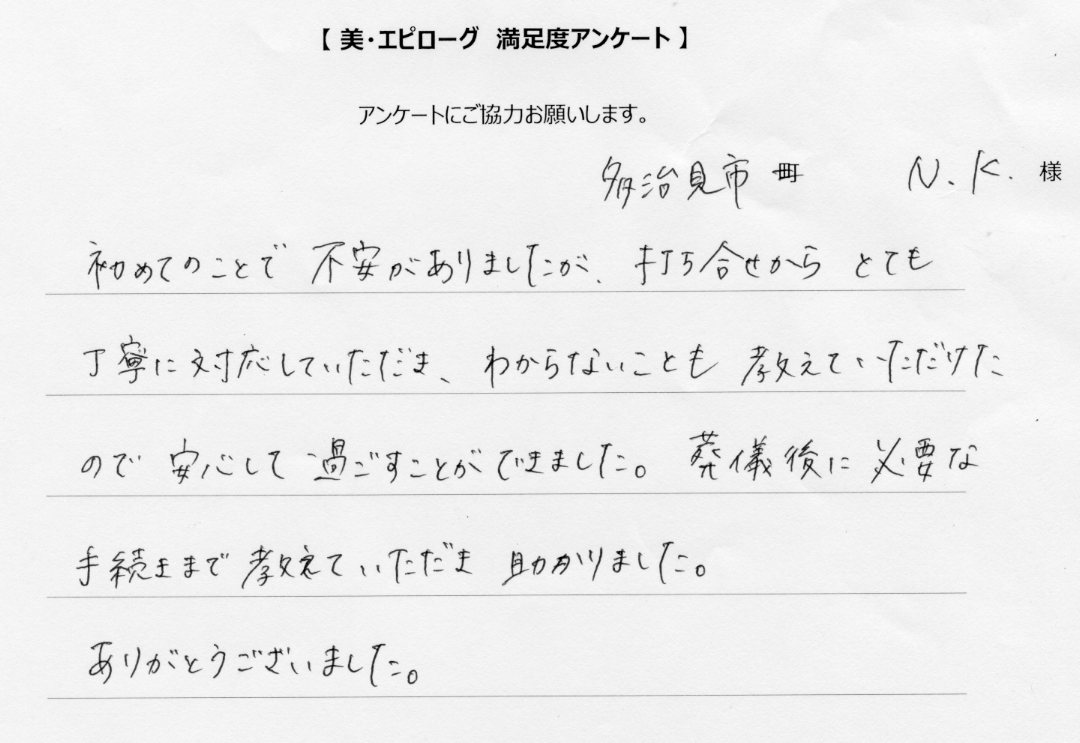 【 美・エピローグ 満足度アンケート 】
アンケートにご協力お願いします。
多治見市 町 N.K. 様
初めてのことで 不安がありましたが、打ち合せから とても
丁寧に対応していただき、わからないことも 教えていただけた
ので 安心して 過ごすことができました。葬儀後に 必要な
手続きまで 教えていただき 助かりました。
ありがとうございました。